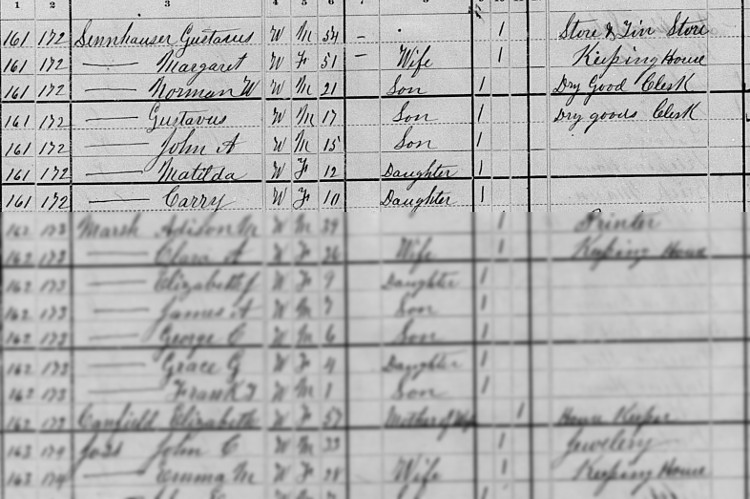 1 2 3 4 5 6 7 8 9 10 11 12
161 172 Sennhauser Gustavus W M 54 1 Store & Tin Store
161 172 — Margaret W F 51 Wife 1 Keeping House
161 172 — Norman W W M 21 Son 1 Dry Good Clerk
161 172 — Gustavus W M 17 Son 1 Dry goods Clerk
161 172 — John A W M 15 Son 1
161 172 — Matilda W F 12 Daughter 1
161 172 — Carry W F 10 Daughter 1
162 173 Marsh Adison M W M 39 1 Printer
162 173 — Clara A W F 36 Wife 1 Keeping House
162 173 — Elizabeth J W F 9 Daughter 1
162 173 — James A W M 7 Son 1
162 173 — George C W M 6 Son 1
162 173 — Grace G W F 4 Daughter 1
162 173 — Frank T W M 1 Son 1
162 173 Canfield Elizabeth W F 57 Mother of Wife 1 House Keeper
163 174 John C W M 33 1 Jewelery
163 174 — Emma M W F 28 Wife 1 Keeping House